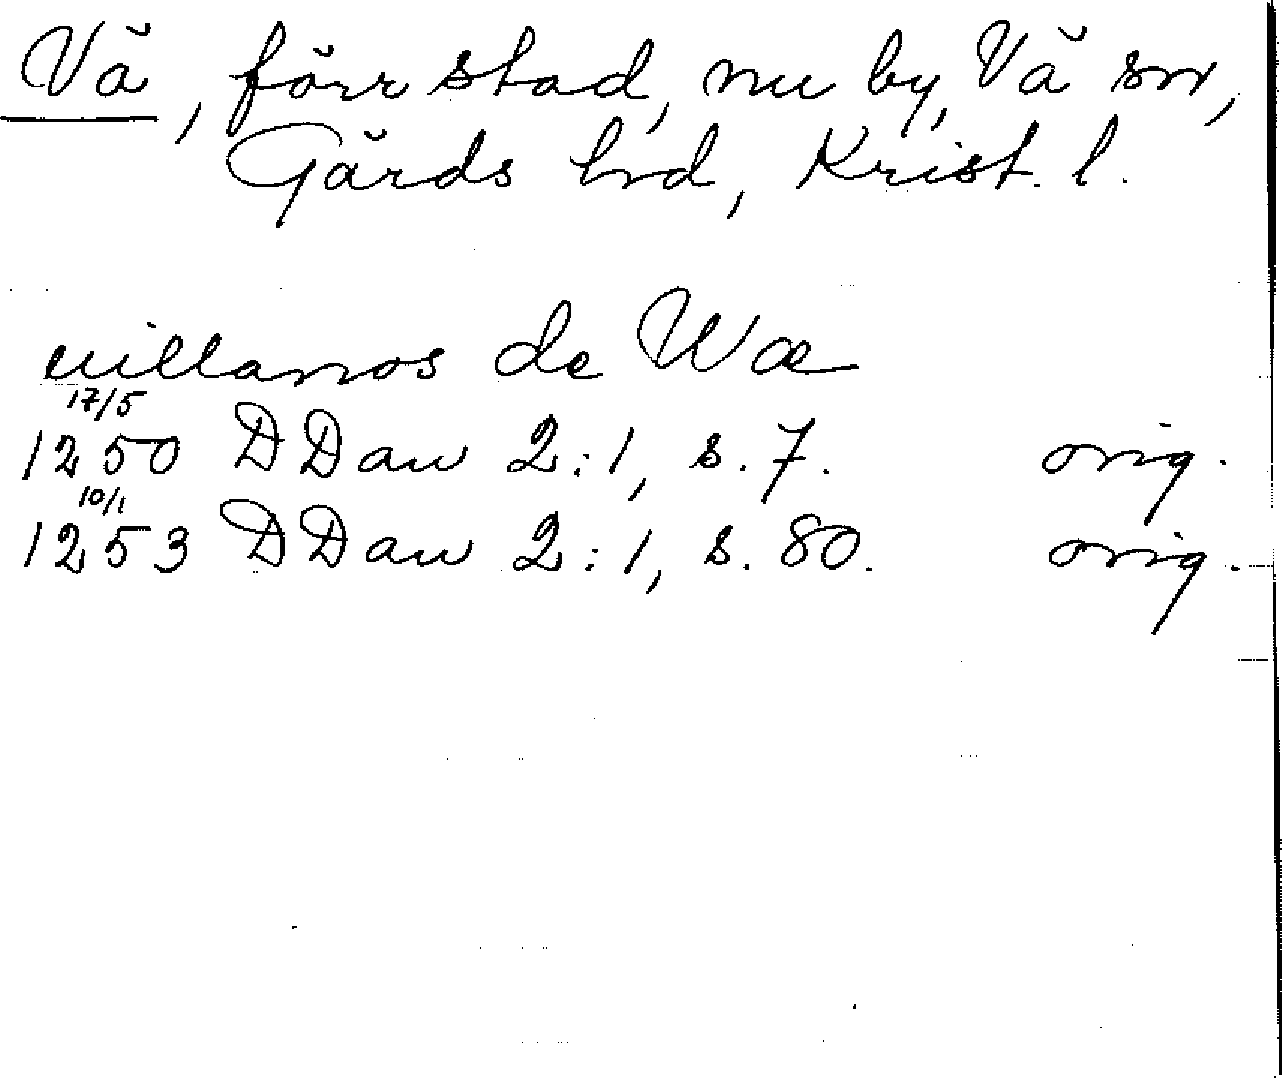 Vä, förr stad, nu by, Vä sn,
Gärds hd, Krist. l.
uillanos de Wæ
17/5
1250 DDan 2:1, s. 7. orig.
10/1
1253 DDan 2:1, s. 80. orig.